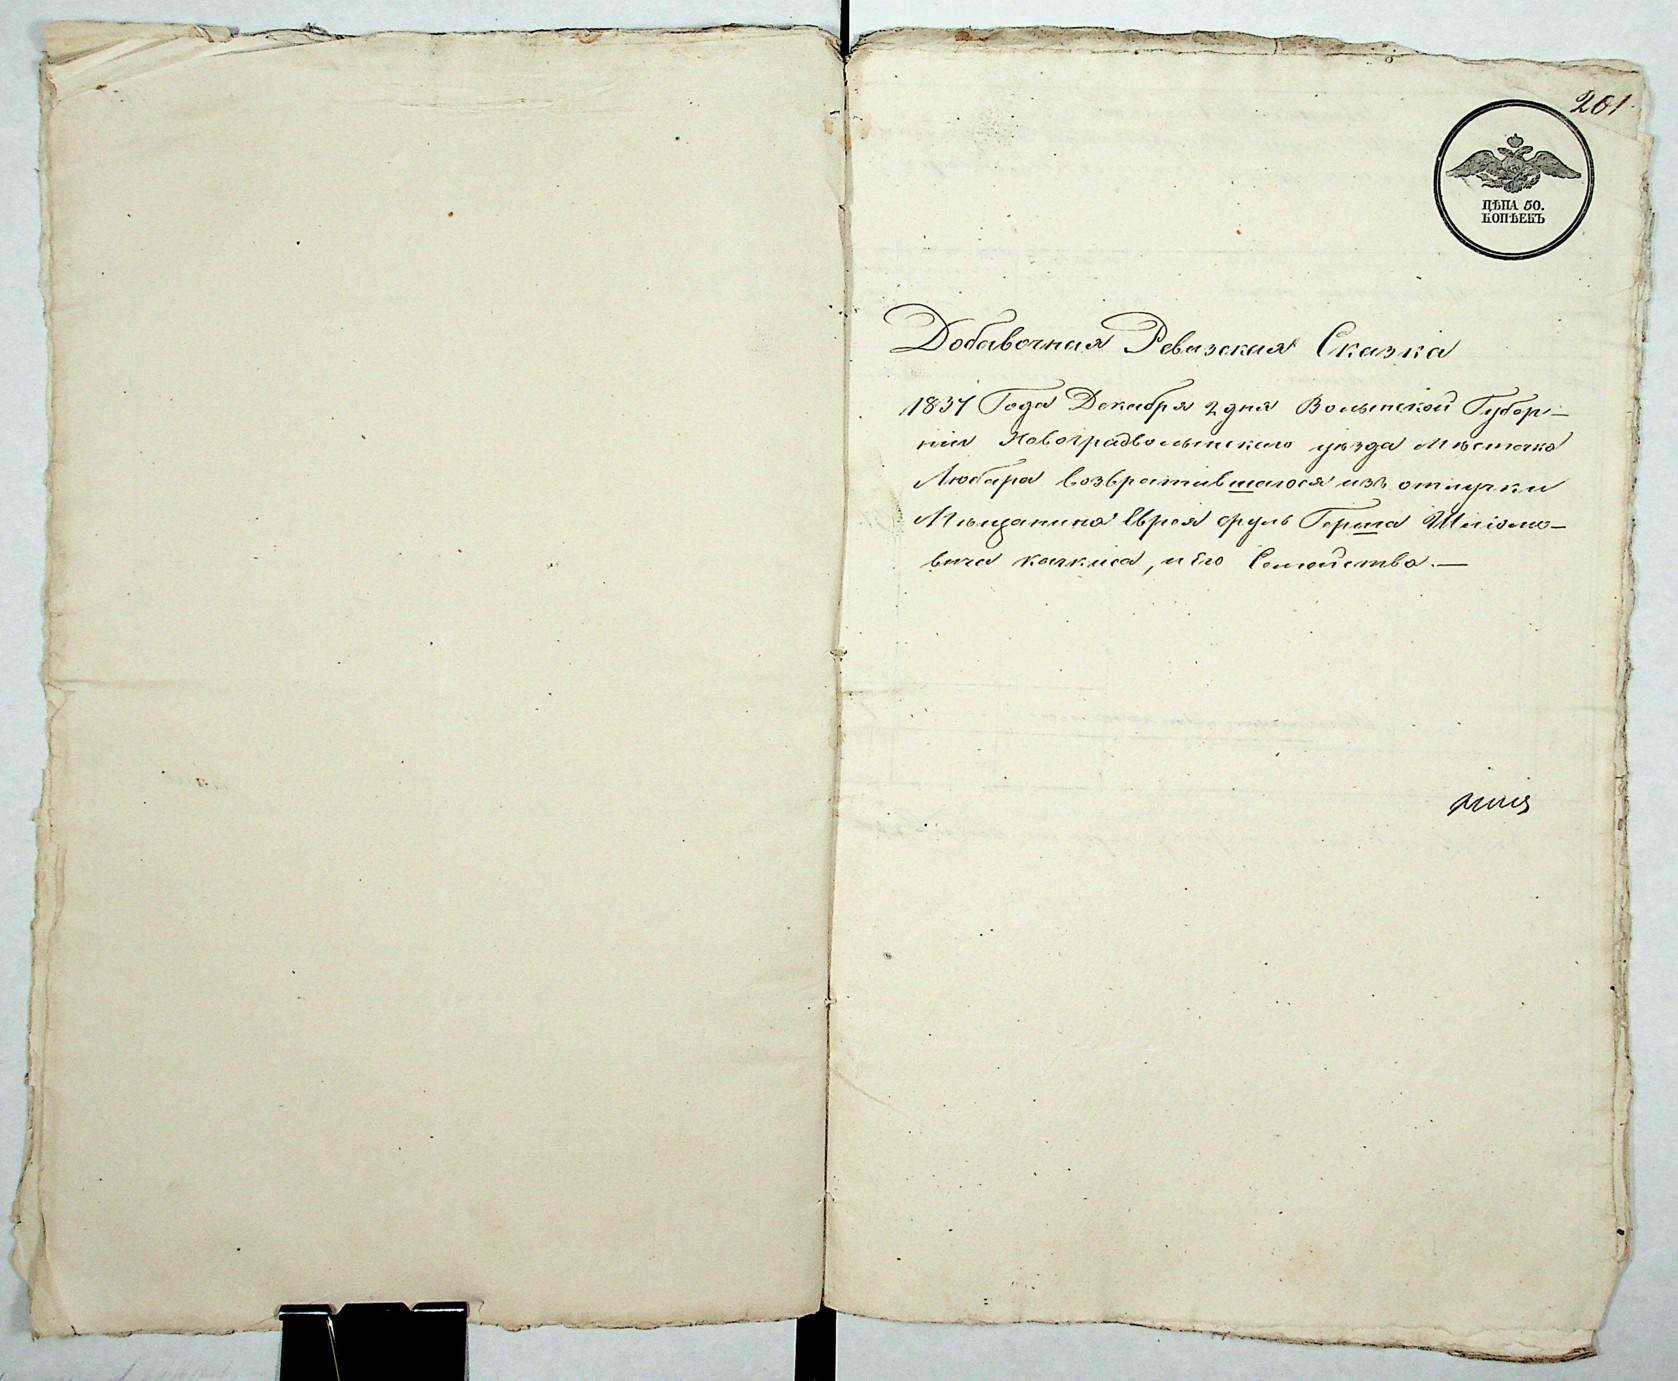 201
ЦѢНА 50.
КОПѢЕКЪ
Добавочная Ревизская Сказка
1837 Года Декабря 2 дня Волынской Губер-
нии Новоградволынскаго уѣзда Мѣстечка
Любара возвратившагося изъ отлучки
Мѣщанина Еврея Сруль Герша Шліомо-
вича, и Его Семейства.—